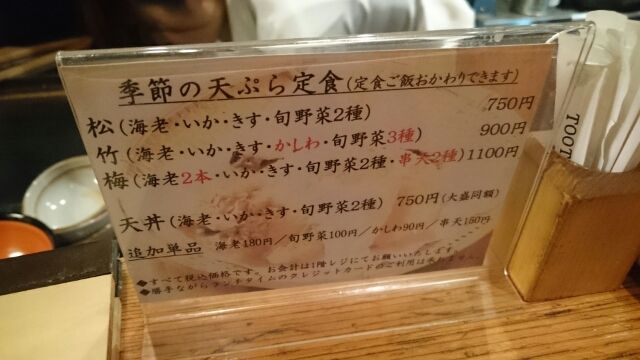 季節の天ぷら定食(定食ご飯おかわりできます)
松(海老・いか・きす・旬野菜2種) 750円
竹(海老・いか・きす・かしわ・旬野菜3種) 900円
梅(海老2本・いか・きす・旬野菜2種・串天2種) 1100円
天丼(海老・いか・きす・旬野菜2種) 750円(大盛同額)
追加単品 海老180円/旬野菜100円/かしわ90円/串天150円
◆すべて税込価格です。お会計は1階レジにてお願いいたします。
◆勝手ながらランチタイムのクレジットカードのご利用は承れません。
TOOT